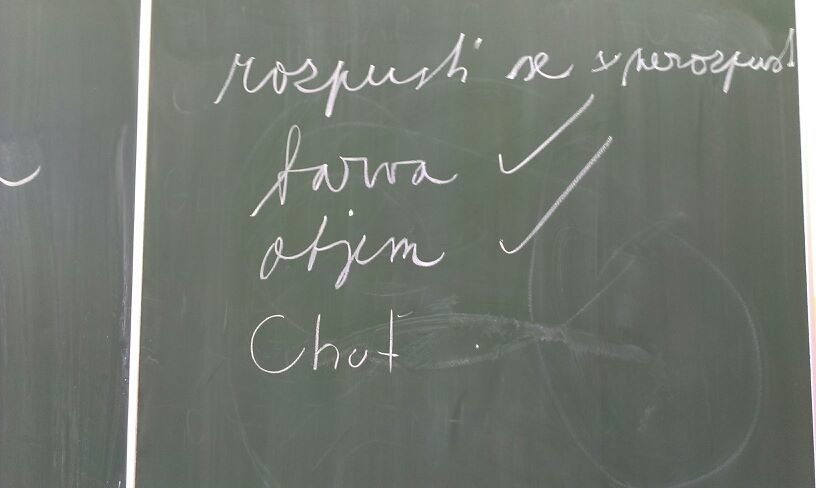 rozpustí se x nerozpust
barva ✓
objem ✓
Chuť